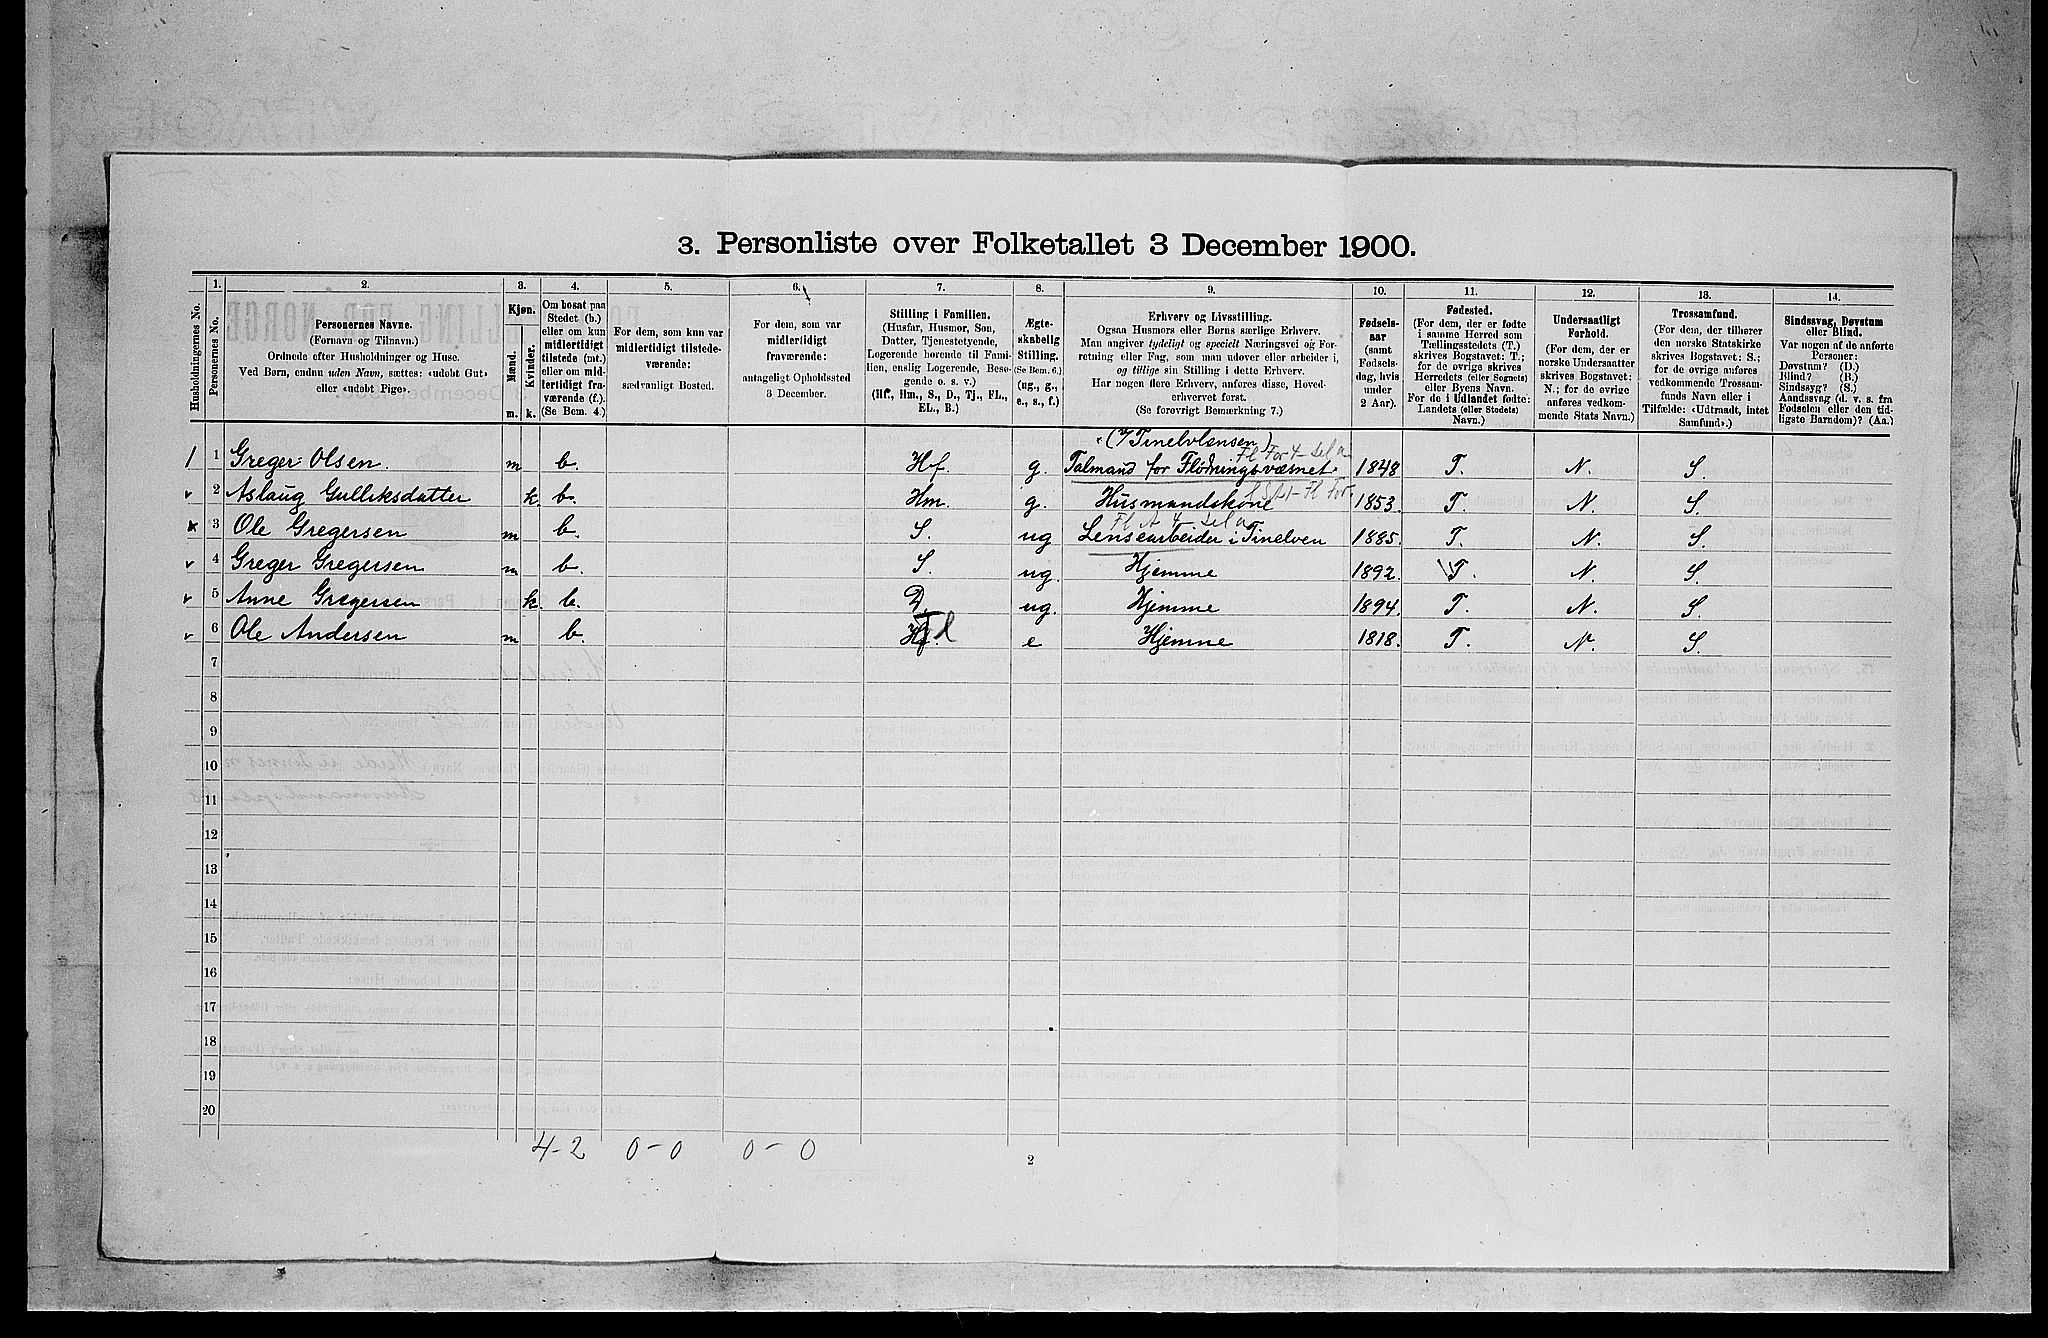 3. Personliste over Folketallet 3 December 1900.
1. 2. 3. 4. 5. 6. 7. 8. 9. 10. 11. 12. 13. 14.
Husholdningernes No.
Personernes No.
Personernes Navne.
(Fornavn og Tilnavn).
Ordnede efter Husholdninger og Huse.
Ved Børn, endnu uden Navn, sættes: «udøbt Gut»
eller «udøbt Pige».
Kjøn.
Mænd.
Kvinder.
m. k.
Om bosat paa
Stedet (b.)
eller om kun
midlertidigt
tilstede (mt.)
eller om mid-
lertidigt fra-
værende (f.).
(Se Bem. 4.)
For dem, som kun var
midlertidigt tilstede-
værende:
sædvanligt Bosted.
For dem, som var
midlertidigt
fraværende:
antageligt Opholdssted
3 December.
Stilling i Familien.
(Husfar, Husmor, Søn,
Datter, Tjenestetyende,
Logerende hørende til Fami-
lien, enslig Logerende, Besø-
gende o. s. v.)
(Hf., Hm., S., D., Tj., FL.,
EL., B.)
Ægte-
skabelig
Stilling.
(Se Bem. 6.)
(ug., g.,
e., s., f.)
Erhverv og Livsstilling.
Ogsaa Husmors eller Børns særlige Erhverv.
Man angiver tydeligt og specielt Næringsvei og For-
retning eller Fag, som man udøver eller arbeider i,
og tillige sin Stilling i dette Erhverv.
Har nogen flere Erhverv, anføres disse, Hoved-
erhvervet først.
(Se forøvrigt Bemærkning 7.)
Fødsels-
aar
(samt
Fødsels-
dag, hvis
under
2 Aar).
Fødested.
(For dem, der er fødte
i samme Herred som
Tællingsstedets (T.)
skrives Bogstavet: T.;
for de øvrige skrives
Herredets (eller Sognets)
eller Byens Navn.
For de i Udlandet fødte:
Landets (eller Stedets)
Navn.)
Undersaatligt
Forhold.
(For dem, der er
norske Undersaatter
skrives Bogstavet:
N.; for de øvrige
anføres vedkom-
mende Stats Navn.)
Trossamfund.
(For dem, der tilhører
den norske Statskirke
skrives Bogstavet: S.;
for de øvrige anføres
vedkommende Trossam-
funds Navn eller i
Tilfælde: «Udtraadt, intet
Samfund».)
Sindssvag, Døvstum
eller Blind.
Var nogen af de anførte
Personer:
Døvstum? (D.)
Blind? (B.)
Sindssyg? (S.)
Aandssvag (d. v. s. fra
Fødselen eller den tid-
ligste Barndom)? (Aa.)
(i Tinelvlænsen)
1 1 Greger Olsen. m b. Hf. g. Talmand for Flødningsvæsnet. 1848 T. N. S.
2 Aslaug Gulliksdatter k. b. Hm. g. Husmandskone 1853. T. N. S.
3 Ole Gregersen m b. S. ug Lensearbeider i Tinelven 1885. T. N. S.
4 Greger Gregersen m b. S. ug. Hjemme 1892. T. N. S.
5 Anne Gregersen k. b. D. ug. Hjemme 1894. T. N. S.
6 Ole Andersen m b. Hf. Fl e Hjemme 1818. T. N. S.
7
8
9
10
11
12
13
14
15
16
17
18
19
20
4-2 0-0 0-0
2